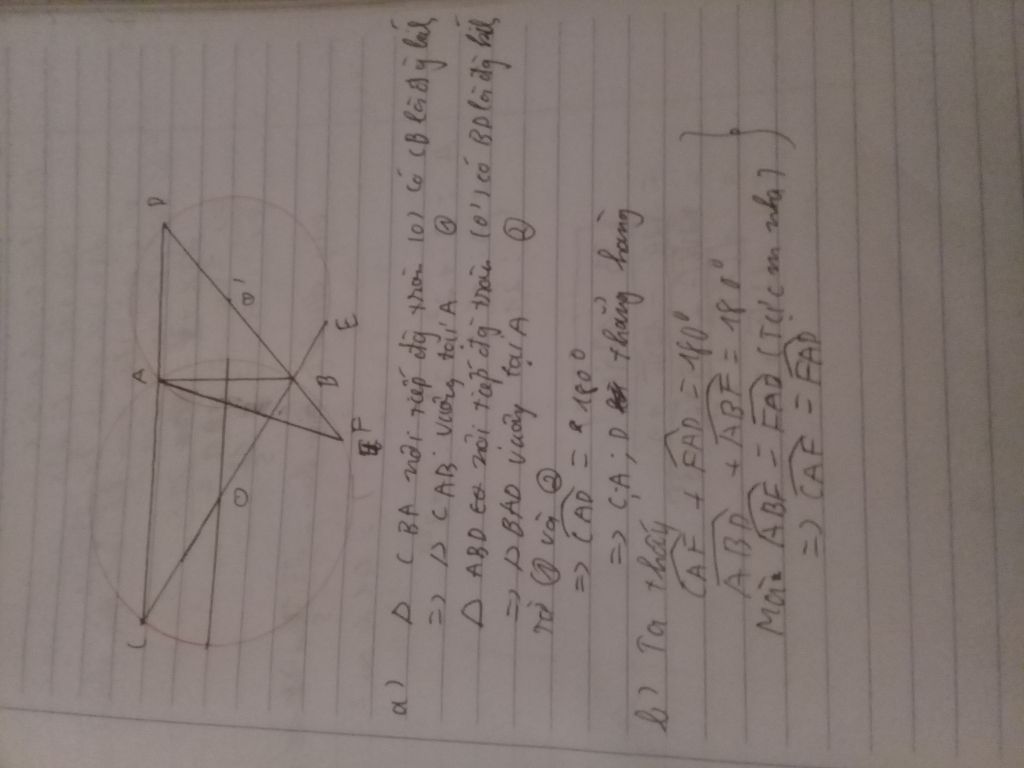 C
A
D
O
O'
B
E
F
a) Δ CBA nội tiếp đg tròn (O) có CB là đg kính
=> Δ CAB vuông tại A ①
Δ ABD nội tiếp đg tròn (O') có BD là đg kính
=> Δ BAD vuông tại A ②
Từ ① và ②
=> CAD = 180°
=> C, A, D thẳng hàng
b) Ta thấy
CAF + FAD = 180°
ABD + ABF = 180°
Mà ABF = FAD (Tự cm nha)
=> CAF = FAD